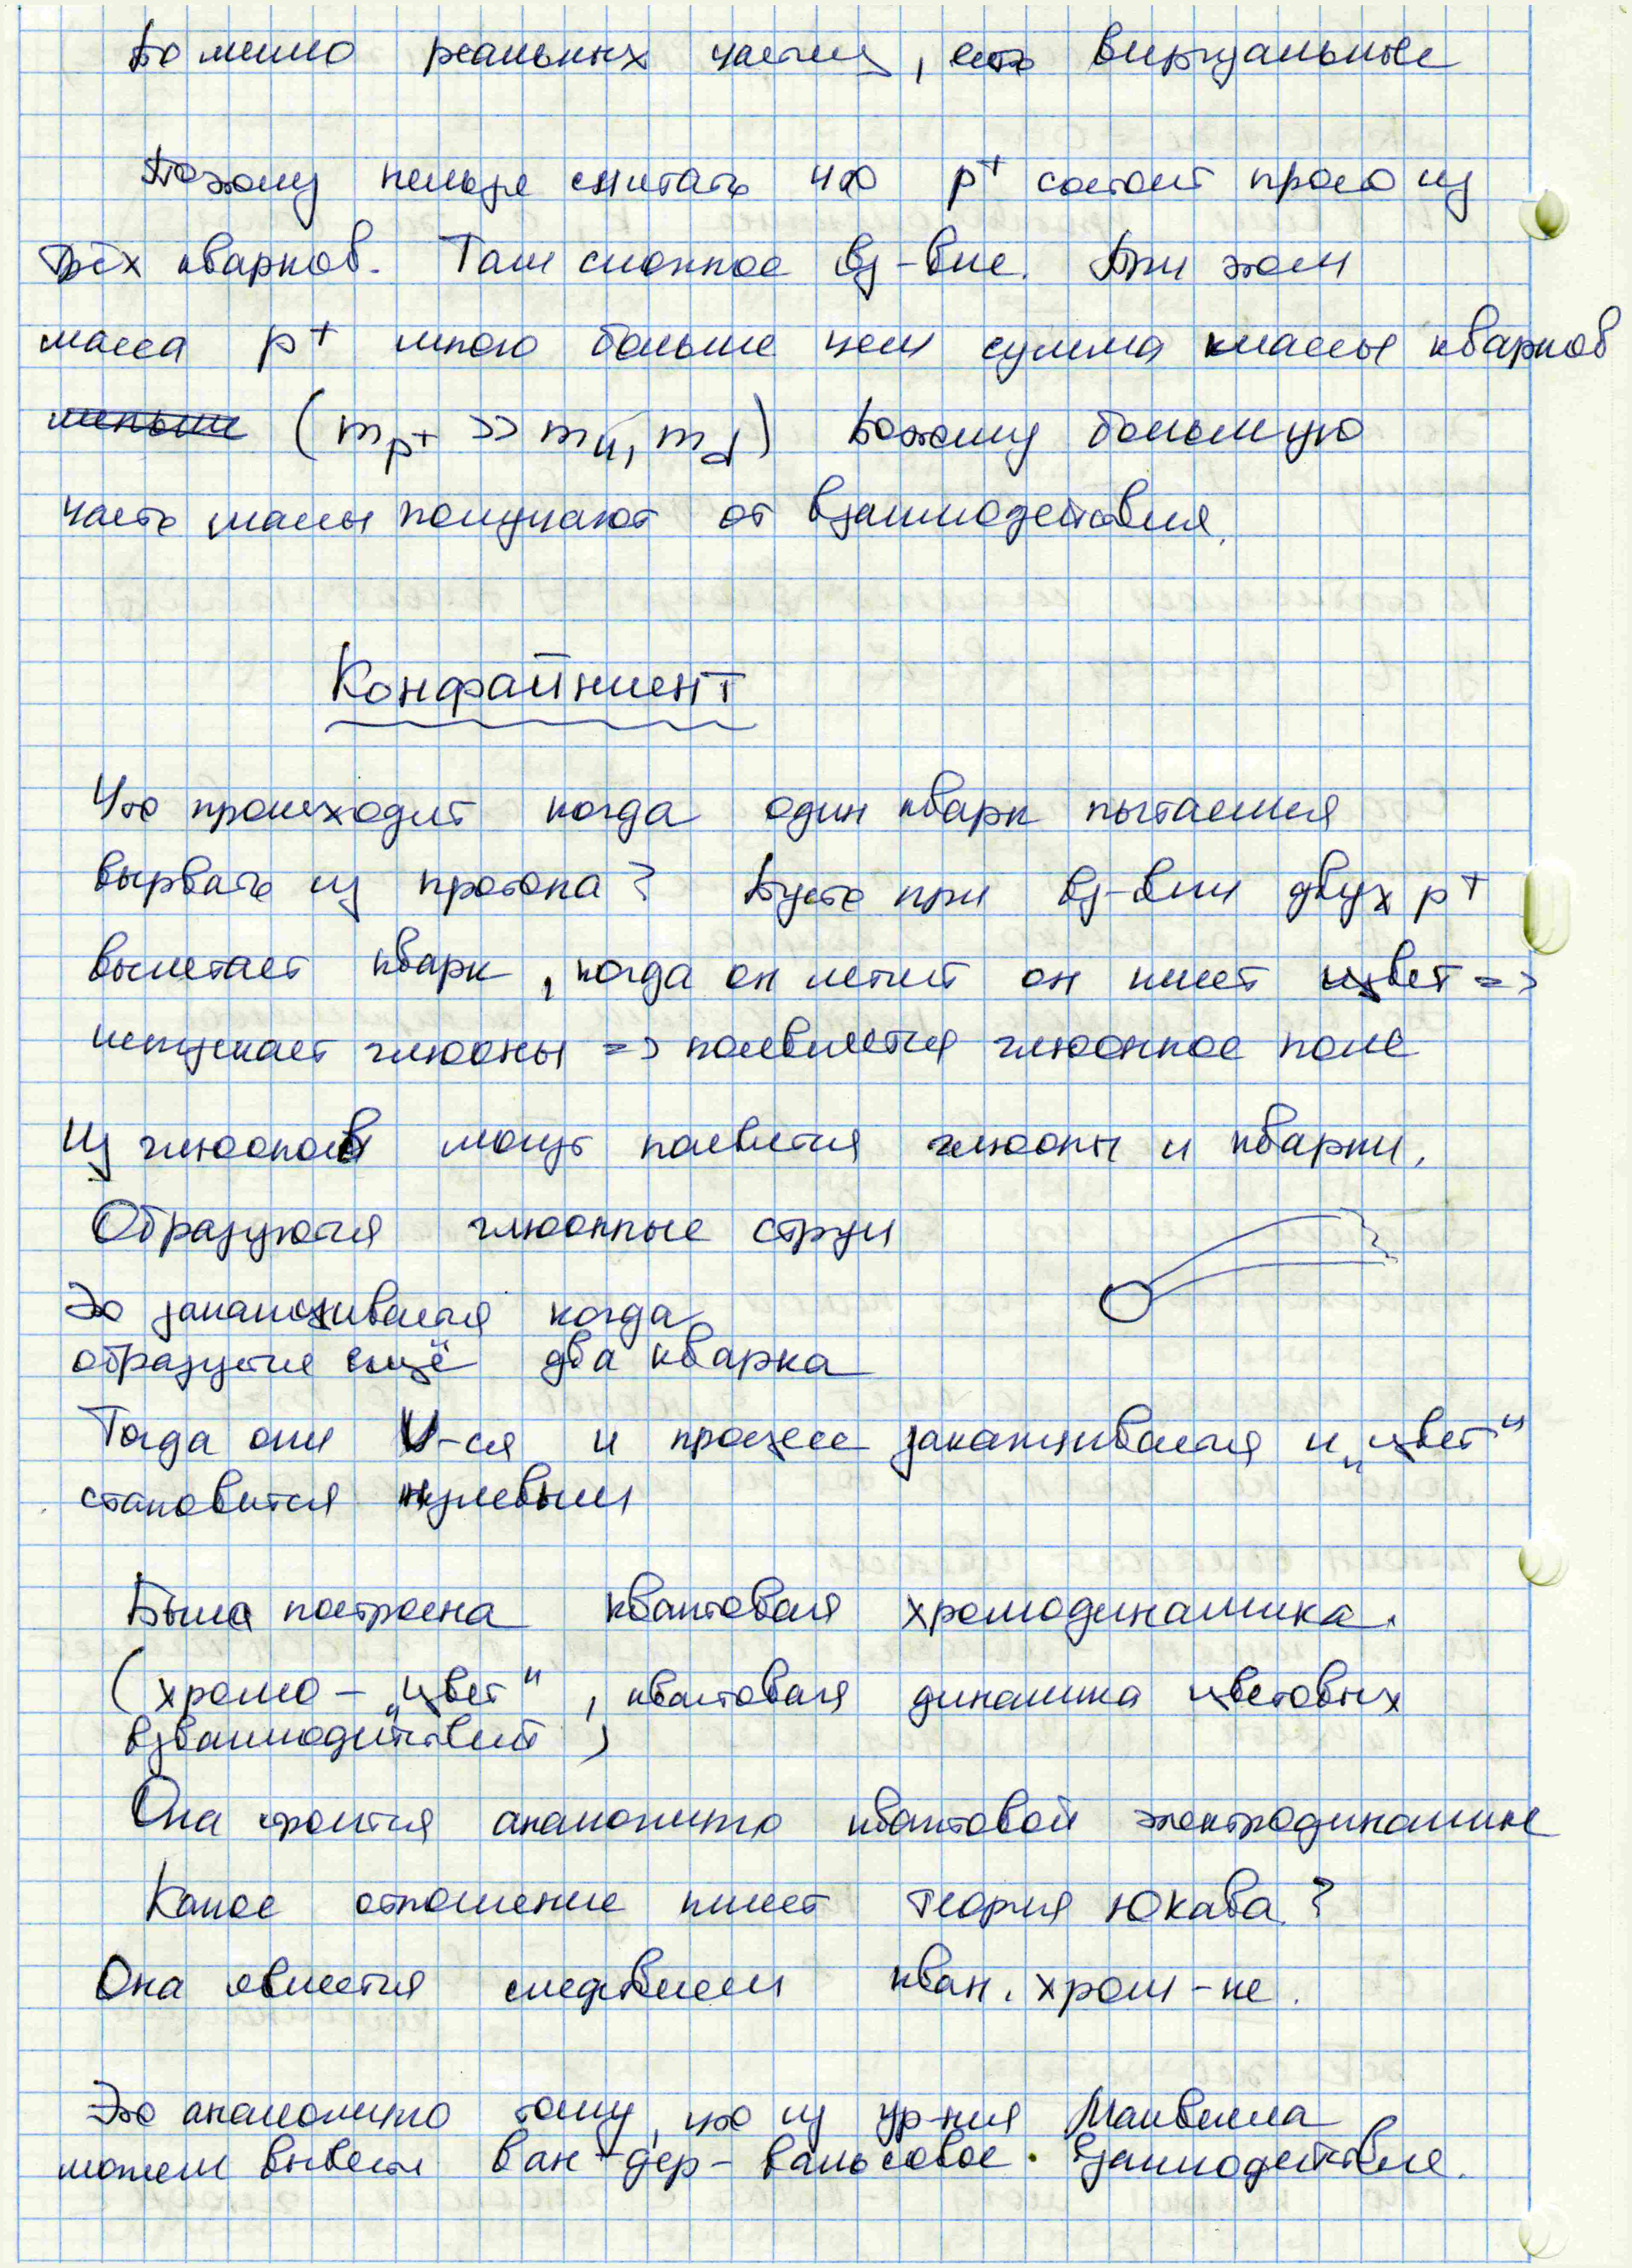 Помимо реальных частиц, есть виртуальные
Поэтому нельзя считать что p⁺ состоит просто из
трёх кварков. Там сложное вз-вие. При этом
масса p⁺ много больше чем сумма массы кварков
(m_p⁺ >> m_u, m_d) Поэтому большую
часть массы получают от взаимодействия.
Конфайнмент
Что происходит когда один кварк пытаемся
вырвать из протона? Пусть при вз-вии двух p⁺
вылетает кварк, когда он летит он имеет цвет =>
испускает глюоны => появляется глюонное поле
Из глюонов могут появится глюоны и кварки.
Образуются глюонные струи
Это заканчивается когда
образуется ещё два кварка
Тогда они U-ся и процесс заканчивается и „цвет“
становится нулевым
Была построена квантовая хромодинамика.
(хромо – „цвет“, квантовая динамика цветовых
взваимодействий)
Она строится аналогично квантовой электродинамике
Какое отношение имеет теория Юкава?
Она является следствием кван. хром-ке.
Это аналогично тому, что из ур-ния Максвелла
можем вывести ван-дер-вальсовое взаимодействие.